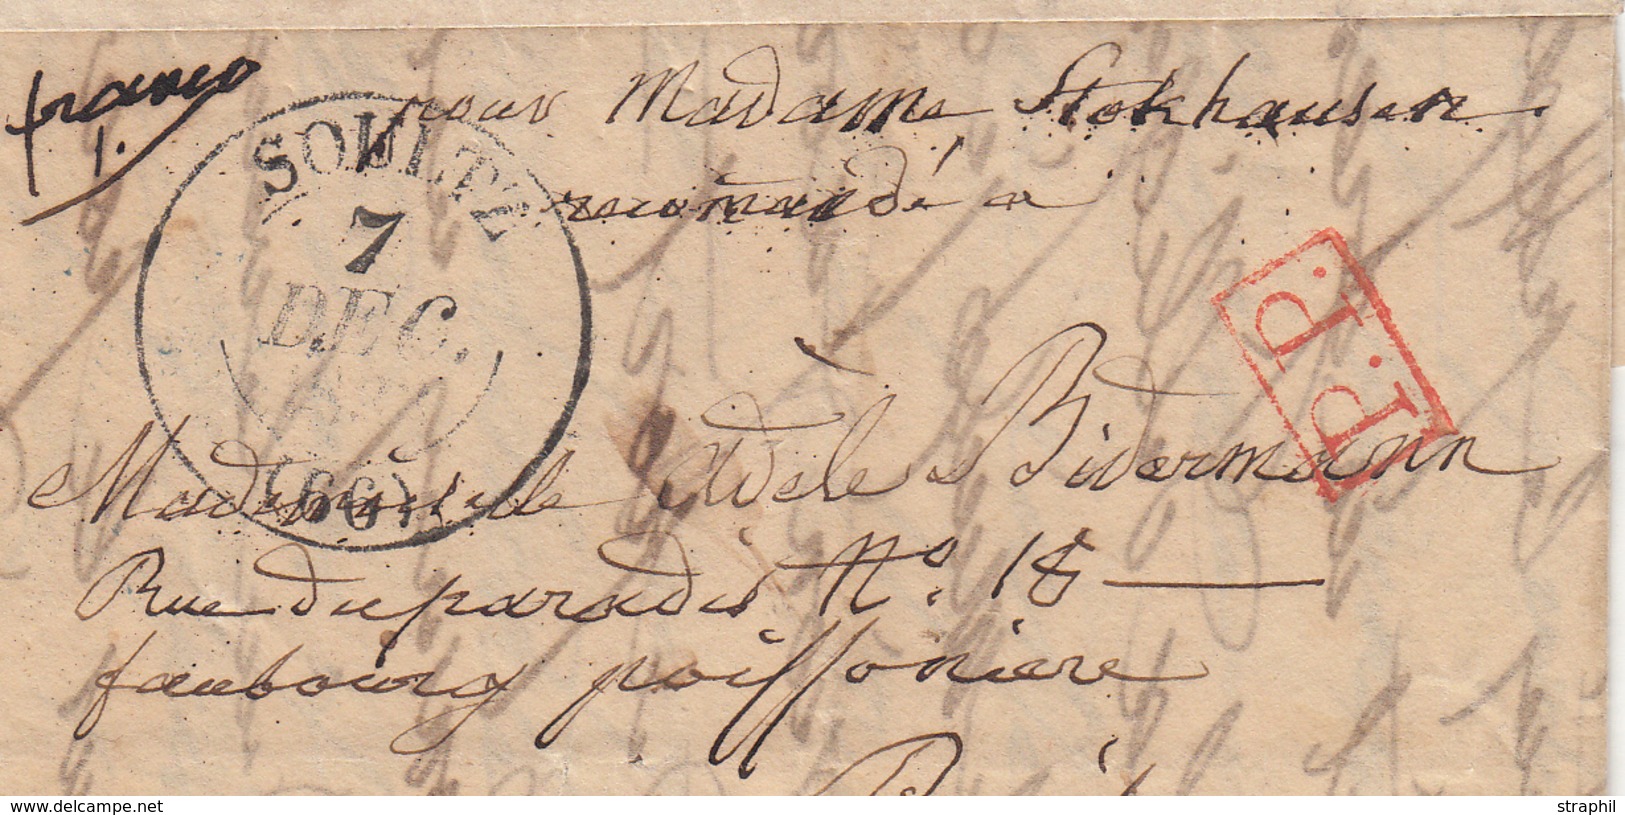 franco
pour Madame Stokhausen
recommandé a
SOULTZ
7
DEC.
(66)
P.P.
P.P.
Mademoiselle Adele Bidermann
Rue du paradis N° 18
faubourg poissoniere
www.delcampe.net
straphil